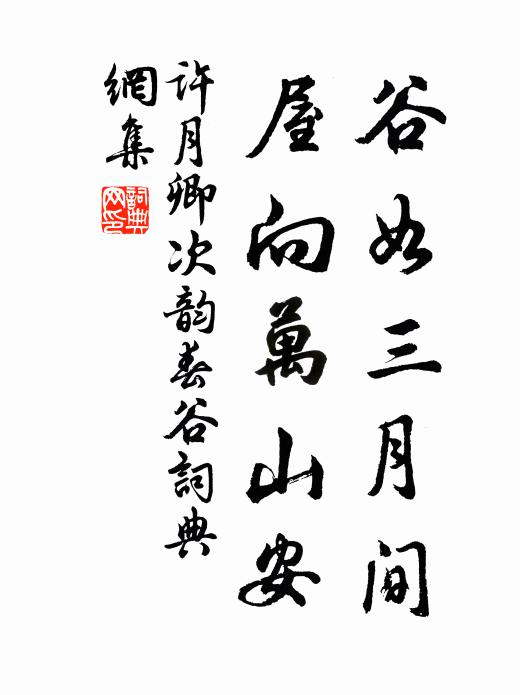 谷如三月间
屋向萬山安
许月卿次韵春谷詞典
網集
詞典網印